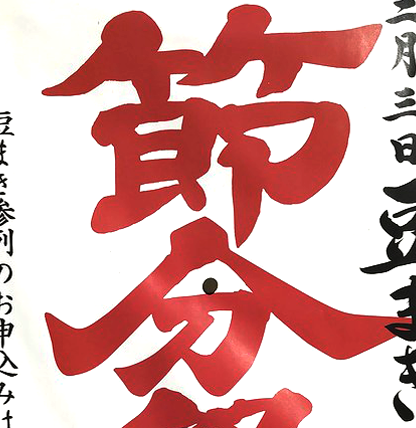 二月三日豆まき
節分祭
豆まき参列のお申込みは